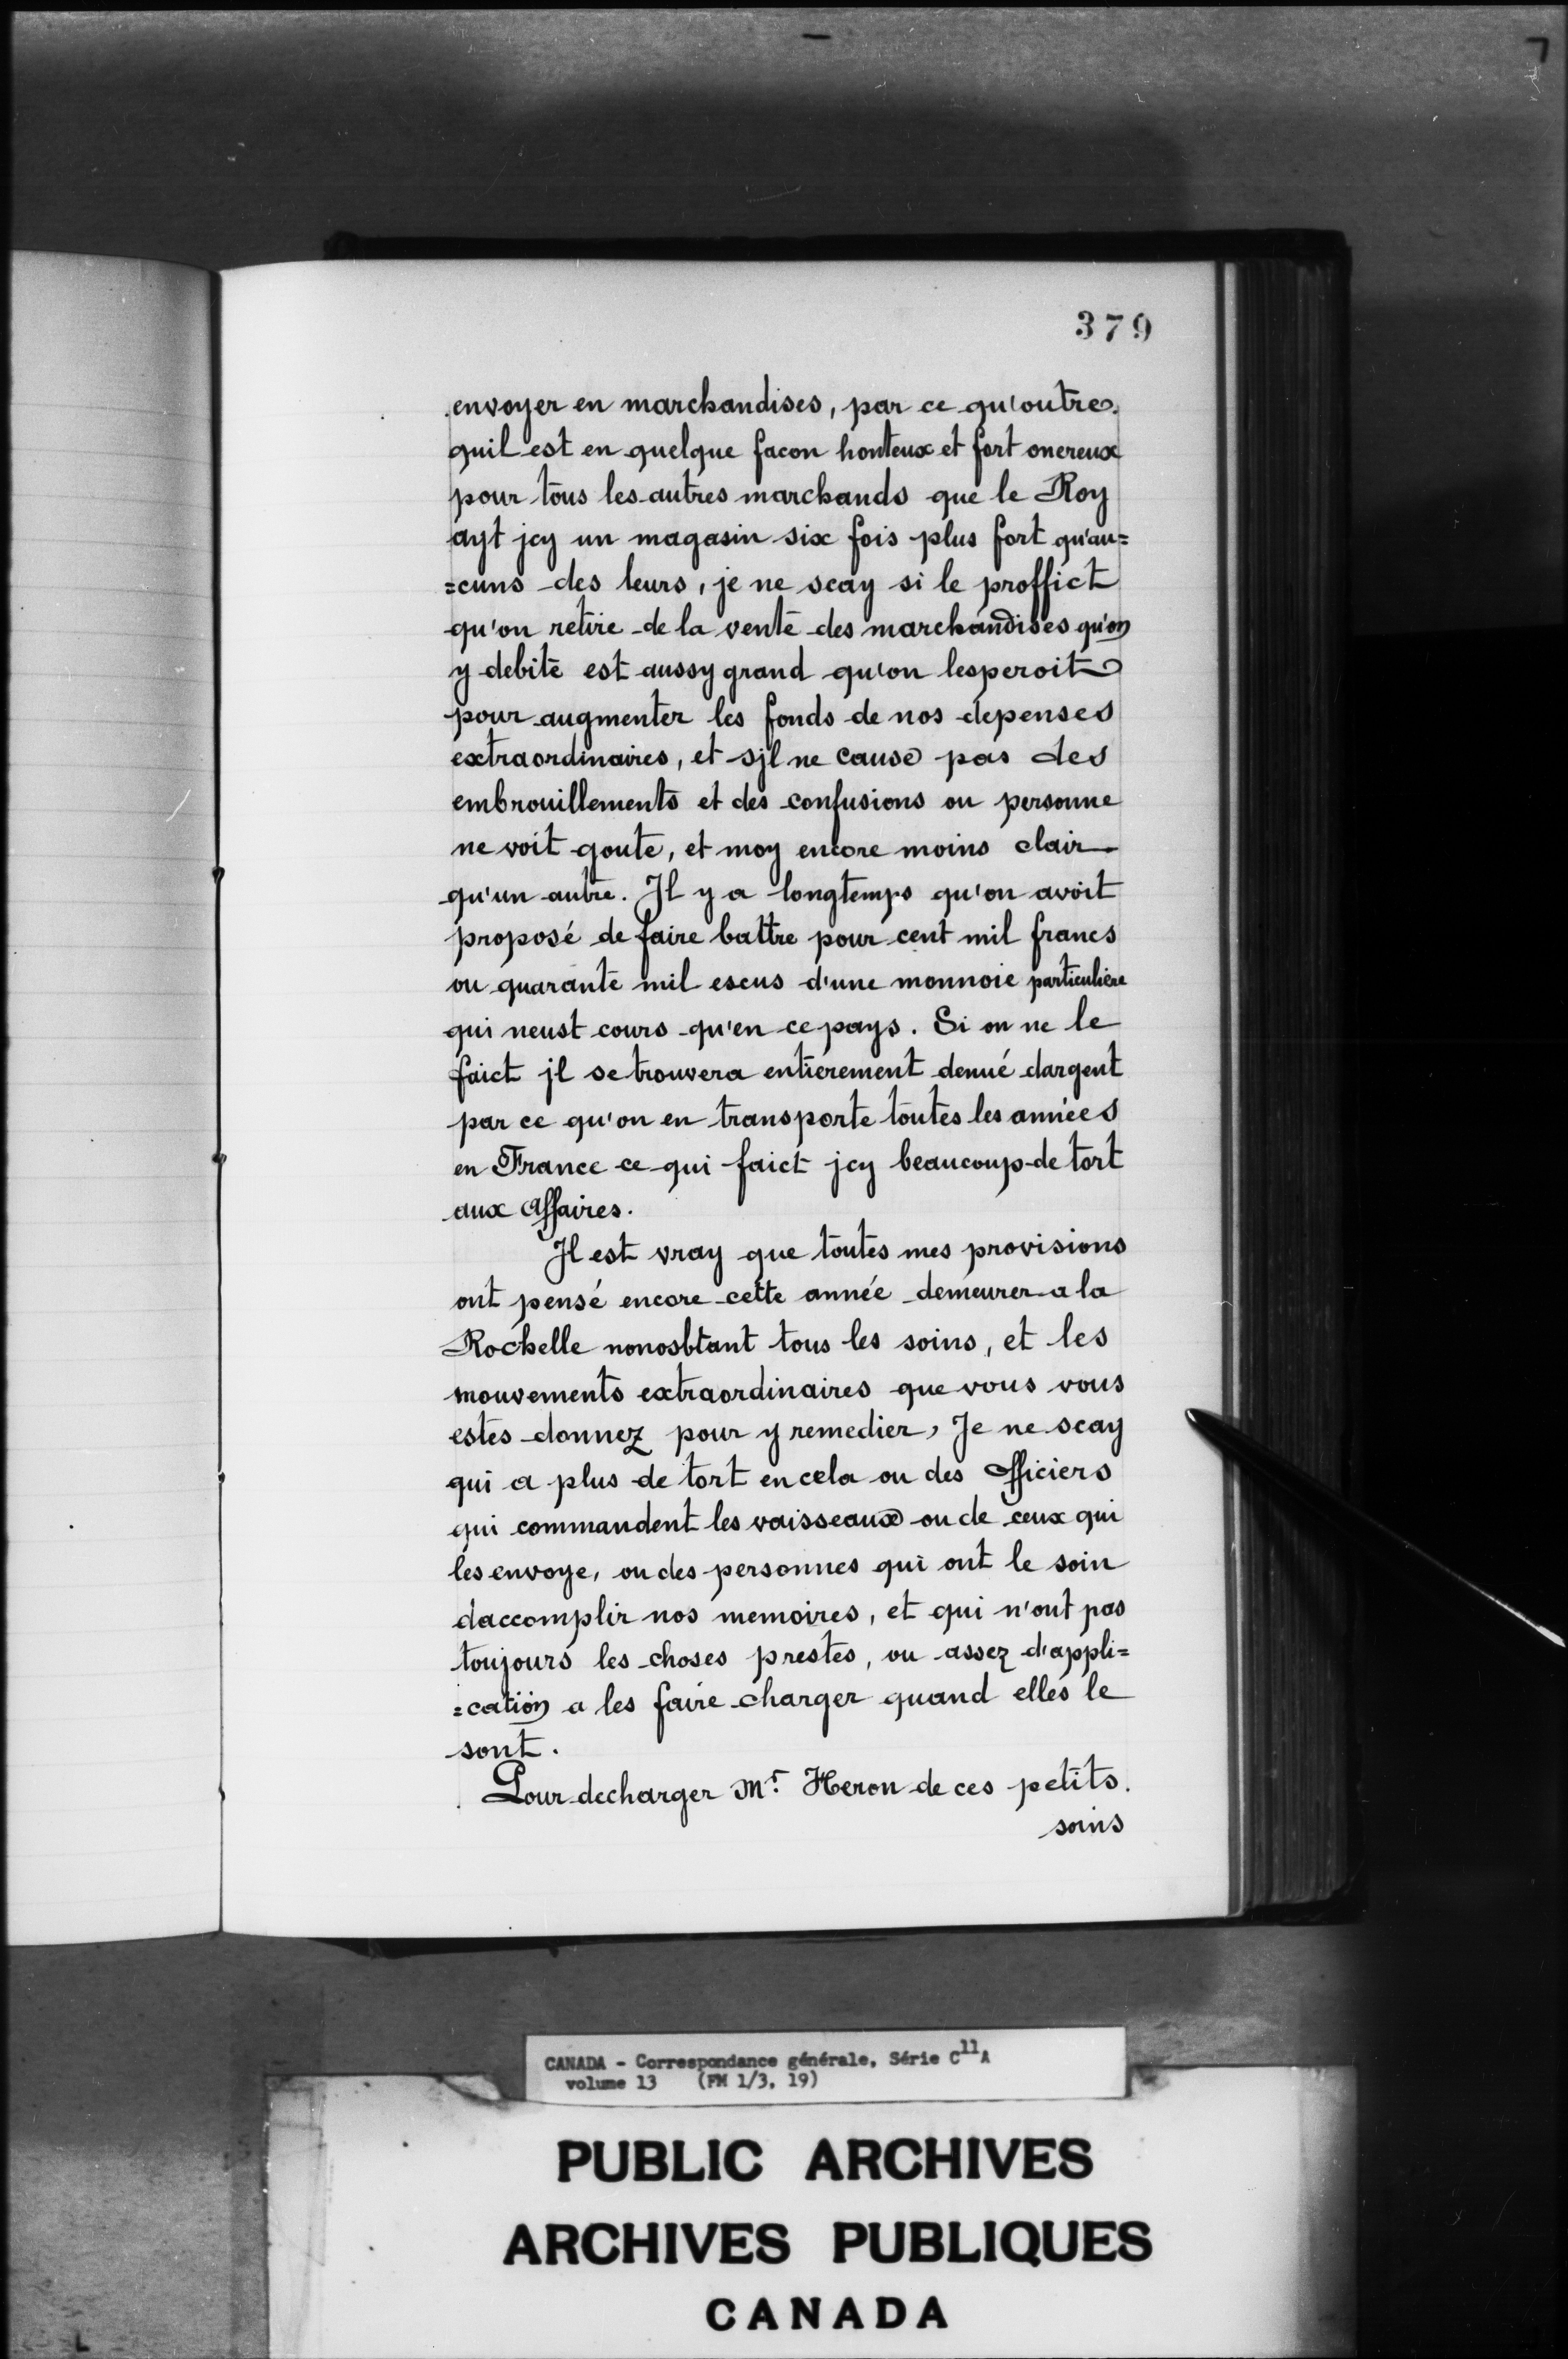 379
envoyer en marchandises, par ce qu'outre
quil est en quelque facon honteux et fort onereux
pour tous les autres marchands que le Roy
ayt jcy un magasin six fois plus fort qu'au=
=cuns des leurs, je ne scay si le proffict
qu'on retire de la vente des marchandises qu'on
y debite est aussy grand qu'on lesperoit
pour augmenter les fonds de nos depenses
extraordinaires, et sjl ne cause pas des
embrouillements et des confusions ou personne
ne voit goute, et moy encore moins clair
qu'un autre. Il y a longtemps qu'on avoit
proposé de faire battre pour cent mil francs
ou quarante mil escus d'une monnoie particuliere
qui neust cours qu'en ce pays. Si on ne le
faict jl se trouvera entierement denué dargent
par ce qu'on en transporte toutes les années
en France ce qui faict jcy beaucoup de tort
aux affaires.
Il est vray que toutes mes provisions
ont pensé encore cette année demeurer a la
Rochelle nonosbtant tous les soins, et les
mouvements extraordinaires que vous vous
estes donnez pour y remedier, Je ne scay
qui a plus de tort en cela ou des officiers
qui commandent les vaisseaux ou de ceux qui
les envoye, ou des personnes qui ont le soin
daccomplir nos memoires, et qui n'ont pas
toujours les choses prestes, ou assez d'appli=
=cation a les faire charger quand elles le
sont.
Pour decharger Mr. Heron de ces petits
soins
CANADA - Correspondance générale, Série C11A
volume 13 (FM 1/3, 19)
PUBLIC ARCHIVES
ARCHIVES PUBLIQUES
CANADA